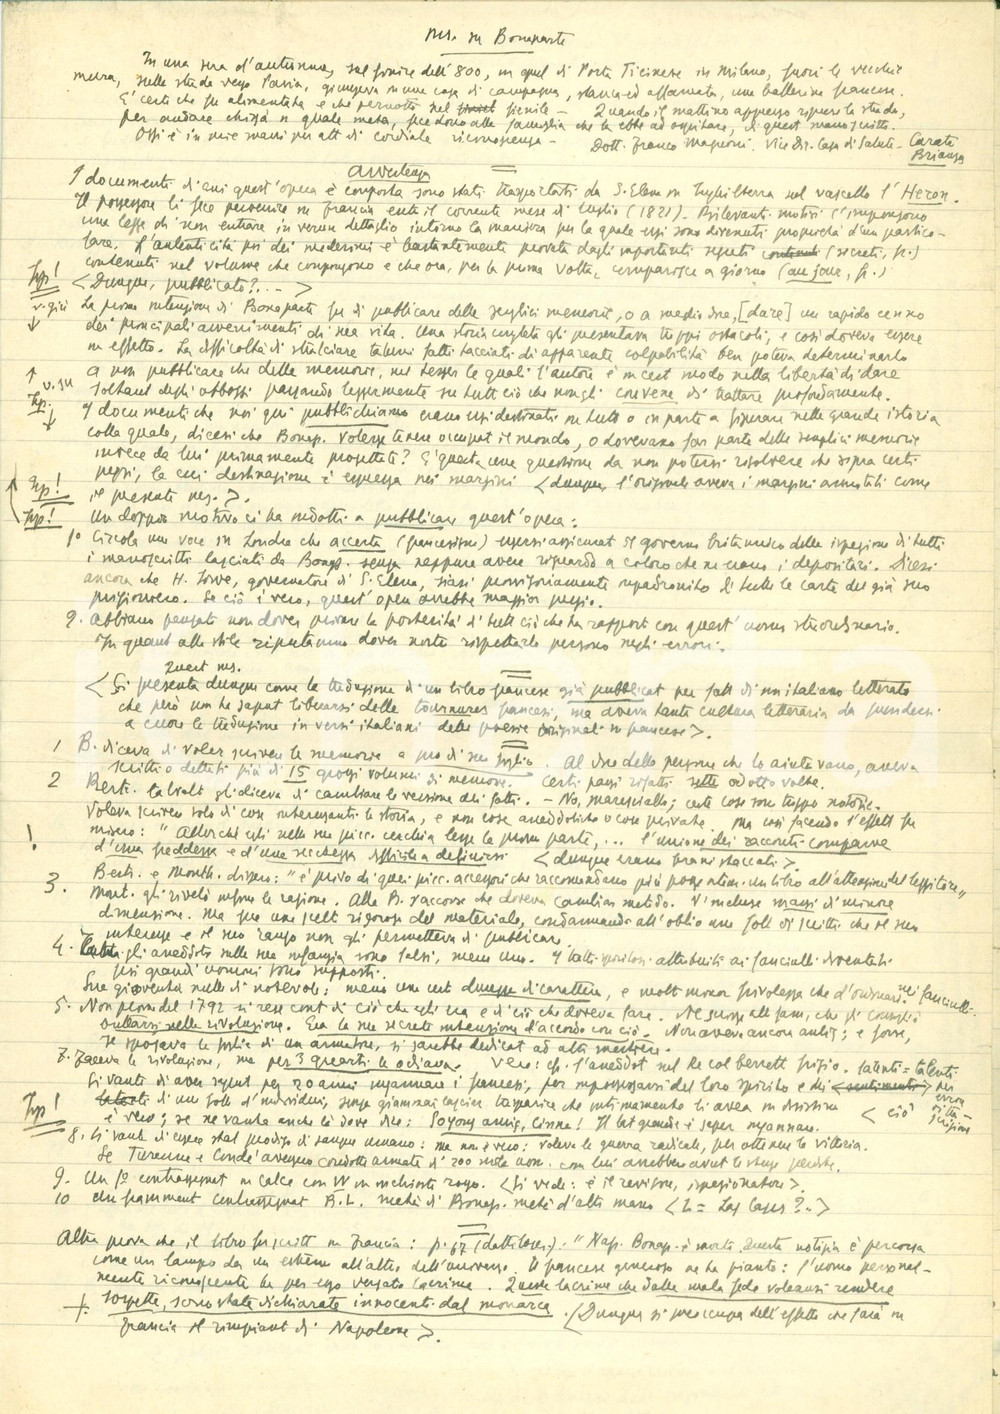 ms. su Bonaparte
In una sera d'autunno, sul finire dell'800, in quel di Porta Ticinese in Milano, fuori le vecchie
mura, sulla strada verso Pavia, giungeva in una casa di campagna, stanca ed affamata, una ballerina francese.
E' certo che fu alimentata e che pernottò nel fienile – Quando il mattino appresso riprese la strada,
per andare chissà a quale meta, fece dono alla famiglia che la ebbe ad ospitare, di questo manoscritto.
Oggi è in mie mani per atto di cordiale riconoscenza – Dott. Franco Magnoni. Vice Dir. Casa di Salute – Carate
Brianza
Avvertenza
I documenti di cui quest'opera è composta sono stati trasportati da S. Elena in Inghilterra nel vascello l'Heron.
Il possessore li fece pervenire in Francia entro il corrente mese di luglio (1821). Rilevanti motivi c'impongono
una legge di non entrare in verun dettaglio intorno la maniera per la quale essi sono divenuti proprietà d'un partico-
lare. L'autenticità poi dei medesimi è bastantemente provata dagli importanti segreti (secrets, fr.)
contenuti nel volume che compongono e che ora, per la prima volta, comparisce a giorno (au jour, fr.)
<Dunque, pubblicato?... – >
v. giù
La prima intenzione di Bonaparte fu di pubblicare delle semplici memorie, o a meglio dire, [dare] un rapido cenno
dei principali avvenimenti di sua vita. Una storia completa gli presentava troppi ostacoli, e così doveva essere
in effetto. La difficoltà di stralciare taluni fatti tacciati di apparente colpabilità ben poteva determinarlo
a non pubblicare che delle memorie, nel tesser le quali l'autore è in certo modo nella libertà di dare
soltanto degli abbozzi passando leggermente su tutto ciò che non gli conviene di trattare profondamente.
v. su
I documenti che noi qui pubblichiamo erano essi destinati in tutto o in parte a figurare nella grande istoria
colla quale, dicesi che Bonap. volesse tenere occupato il mondo, o dovevano far parte delle semplici memorie
invece da lui primamente progettate? E' questa una questione da non potersi risolvere che sopra certi
pezzi, la cui destinazione è espressa nei margini <dunque l'originale aveva i margini annotati come
il presente ms.>.
Un doppio motivo ci ha indotti a pubblicare quest'opera:
1o Circola una voce in Londra che accerta (francesismo) essersi assicurato il governo britannico della ispezione di tutti
i manoscritti lasciati da Bonap. senza neppure avere riguardo a coloro che ne erano i depositari. Dicesi
ancora che H. Lowe, governatore di S. Elena, siasi provvisoriamente impadronito di tutte le carte del già suo
prigioniero. Se ciò è vero, quest'opera avrebbe maggior pregio.
2. Abbiamo pensato non dover privare la posterità di tutto ciò che ha rapporto con quest'uomo straordinario.
In quanto allo stile reputiamo dover rispettarlo persino negli errori.
Quest ms.
<Si presenta dunque come la traduzione di un libro francese già pubblicato per fatto di un italiano letterato
che però non ha saputo liberarsi delle tournures francesi, ma aveva tanta cultura letteraria da prendersi
a cuore la traduzione in versi italiani delle poesie originali in francese>.
1 B. diceva di voler scrivere le memorie a pro di suo figlio. Al dire delle persone che lo aiutavano, aveva
scritti o dettati più di 15 grossi volumi di memorie. Certi passi rifatti sette od otto volte.
2 Bert. talvolta gli diceva di cambiare la versione dei fatti. – No, maresciallo; certe cose son troppo notorie.
Voleva scrivere solo di cose interessanti la storia, e non cose aneddotiche o cose private. Ma così facendo l'effetto fu
misero: "Allorché egli nella sua picc. cerchia lesse la prima parte, ... l'unione dei racconti comparve
d'una freddezza e d'una secchezza difficile a definirsi <dunque erano brani staccati>.
3. Bert. e Month. dissero: "è privo di quei picc. accessori che raccomandano più pagine di un libro all'attenzione del leggitore"
Mont. gli rivelò infine la ragione. Allora B. riconosce che doveva cambiar metodo. V'incluse massi di minore
dimensione. Ma fece una scelta rigorosa del materiale, condannando all'oblio una folla di scritti che il suo
interesse e il suo rango non gli permetteva di pubblicare.
4. gli aneddoti sulla sua infanzia sono falsi, meno uno. I tratti spiritosi attribuiti ai fanciulli diventati
poi grandi uomini sono supposti.
Sua gioventù nulla di notevole: meno una certa durezza di carattere, e molto minor frivolezza che d'ordinario nei fanciulli.
5. Non prima del 1792 si rese conto di ciò che egli era e di ciò che doveva fare.
buttarsi nella rivoluzione. Era la sua secreta intenzione d'accordo con ciò. Non aveva ancora ambiz; e forse,
se sposava la figlia di un armatore, si sarebbe dedicato ad altro mestiere.
7. Faceva la rivoluzione, ma per 3 quarti la odiava. Vero: cfr. l'aneddoto sul re col berretto frigio.
Si vanta di aver saputo per 20 anni ingannare i francesi, per impossessarsi del loro spirito e dei <sentimenti>
di una folla d'individui, senza giammai lasciar trasparire che intimamente li avea in disistima <ciò
è vero; se ne vanta anche là dove dice: Soyons amis, Cinna! Il bel grande è saper ingannare.
8. Si vanta di essere stato prodigo di sangue umano: ma non è vero: voleva la guerra radicale, per ottenere la vittoria.
Se Turenne e Condé avessero condotto armate di 200 mila uom. con lui avrebbero avuto le stesse perdite.
9. Un fo contrassegnato in calce con W in inchiostro rosso. <Si vede: è il revisore, ispezionatore>.
10 Un frammento contrassegnato B.L. metà di Bonap. metà d'altra mano <L = Las Cases?..>
Altra prova che il libro fu scritto in Francia: p. 67 (dattiloscr.): "Nap. Bonap. è morto. Questa notizia è percorsa
come un lampo da un estremo all'altro dell'universo. Il francese generoso ne ha pianto: l'uomo personal-
mente riconoscente ha per esso versato lacrime. Queste lacrime che dalla mala fede voleansi rendere
sospette, sono state dichiarate innocenti dal monarca. <Dunque si preoccupa dell'effetto che farà in
Francia il rimpianto di Napoleone>.